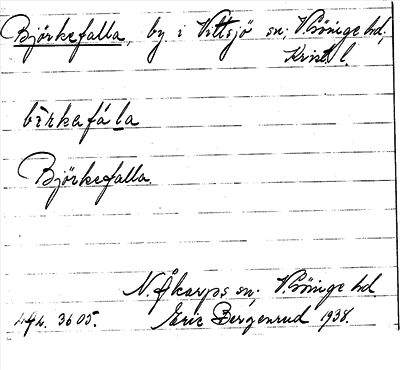 Björkefalla, by i Vittsjö sn; V. Göinge hd,
Krist. l.
bìrkafála
Björkefalla.
N. Åkarps sn; V. Göinge hd.
Eric Bergenrud 1938.
3605.